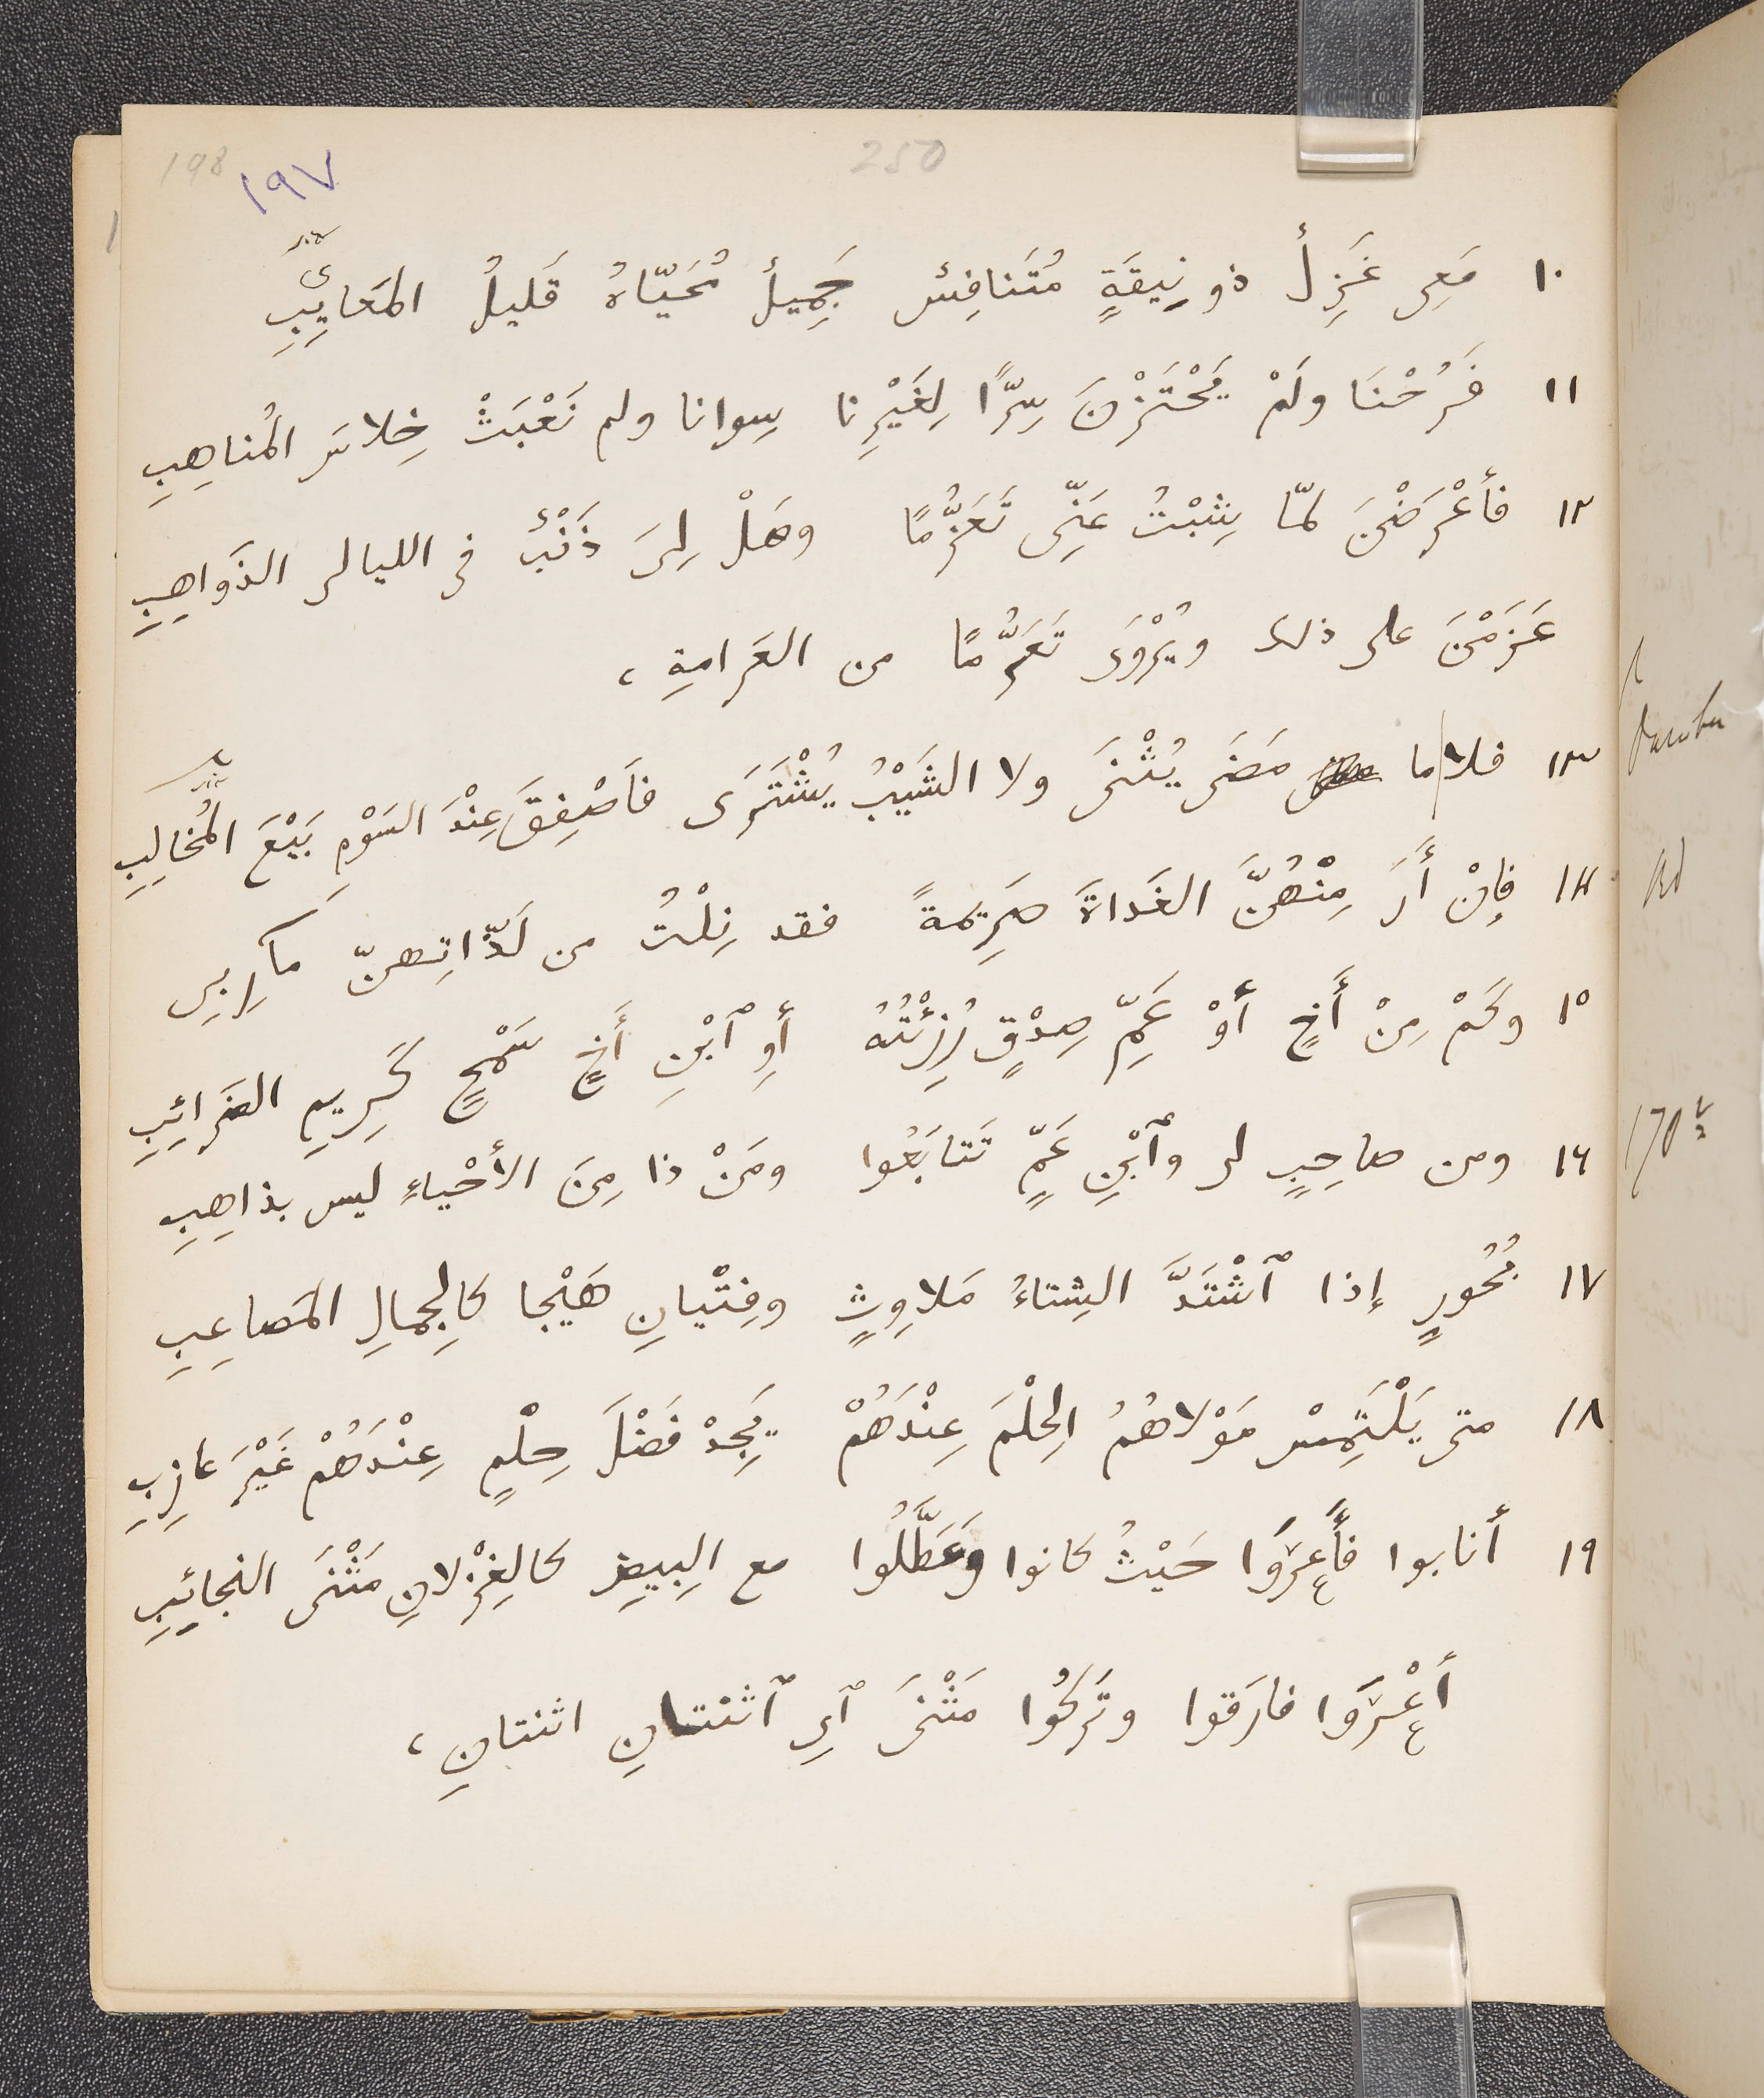 198 ١٩٧ 250
١٠ مَعِى غَزِلٌ ذو نِيقَةٍ مُتَنافِسٌ جَمِيلٌ مُحَيّاهُ قَليلُ المَعايِبِ
١١ فَرُحْنَا ولَمْ يَحْتَزْنَ سِرًّا لِغَيْرِنا سِوانا ولم نَعْبَثْ خِلاسَ المُناهِبِ
١٢ فأَعْرَضْنَ لمّا شِبْتُ عَنِّى تَعَزُّمًا وهَلْ لِىَ ذَنْبٌ فى الليالى الذَواهِبِ
عَزَمْنَ على ذلك ويُرْوَى تَعَرُّمًا من العَرامةِ ،
١٣ فلا ما مَضَى يُثْنَى ولا الشَيْبُ يُشْتَرَى فَأَصْفِقَ عِنْدَ السَوْمِ بَيْعَ المُخالِبِ
١٤ فإِنْ أَرَ مِنْهُنَّ الغَداةَ صَرِيمَةً فقد نِلْتُ من لَذّاتِهنّ مآرِبِى
١٥ وكَمْ مِنْ أَخٍ أَوْ عَمِّ صِدْقٍ رُزِئْتُهُ أَوِ ٱبْنِ أَخٍ سَمْحٍ كَرِيمِ الضَرائِبِ
١٦ ومن صاحِبٍ لى وٱبْنِ عَمٍّ تَتابَعُوا ومَنْ ذا مِنَ الأَحْياءِ ليس بذاهِبِ
١٧ بُحُورٍ إذا ٱشْتَدَّ الشِتاءُ مَلاوِثٍ وفِتْيانِ هَيْجا كالجِمالِ المَصاعِبِ
١٨ متى يَلْتَمِسْ مَوْلاهُمُ الحِلْمَ عِنْدَهُمْ يَجِدْ فَضْلَ حِلْمٍ عِنْدَهُمْ غَيْرَ عازِبِ
١٩ أنابوا فأَعْرَوْا حَيْثُ كانوا وَعَطَّلُوا مع البِيضِ كالغِزْلانِ مَثْنَى النجائِبِ
أَعْرَوْا فارَقوا وتَرَكُوا مَثْنَى آىِ ٱثنتانِ اثنتانِ ،